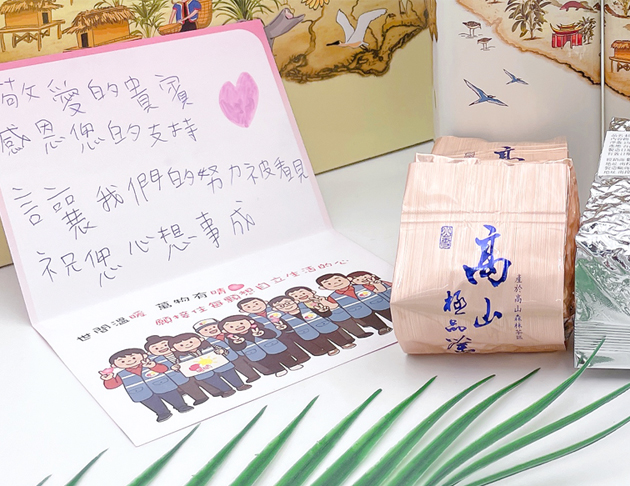 敬愛的貴賓
感恩您的支持
讓我們的努力被看見
祝您心想事成
世間溫暖 萬物有情
願接住每顆想自立生活的心
高山
極品茶
產於高山森林茶區
高